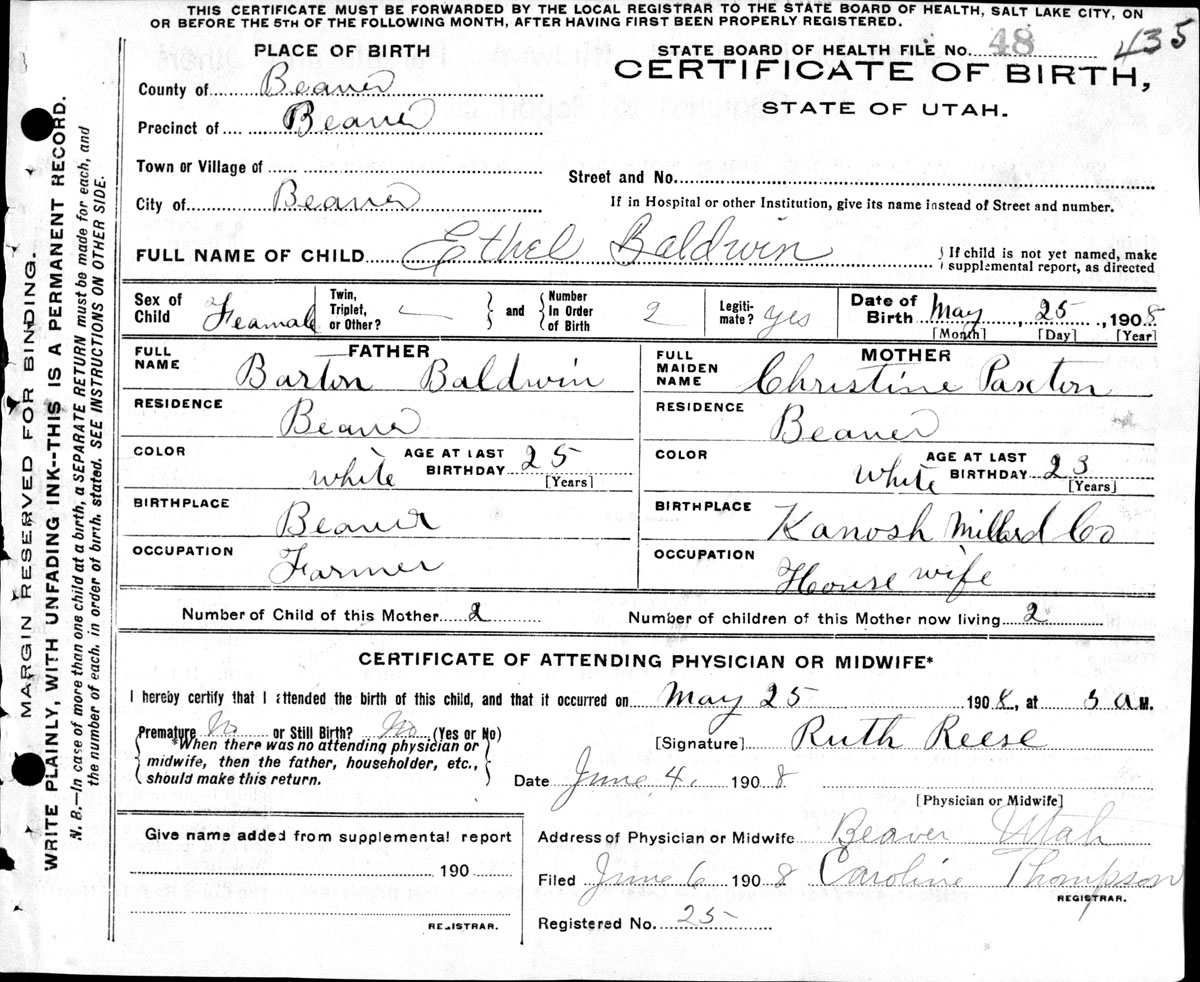 THIS CERTIFICATE MUST BE FORWARDED BY THE LOCAL REGISTRAR TO THE STATE BOARD OF HEALTH, SALT LAKE CITY, ON
OR BEFORE THE 5TH OF THE FOLLOWING MONTH, AFTER HAVING FIRST BEEN PROPERLY REGISTERED.
MARGIN RESERVED FOR BINDING.
WRITE PLAINLY, WITH UNFADING INK--THIS IS A PERMANENT RECORD.
N. B.—In case of more than one child at a birth, a SEPARATE RETURN must be made for each, and
the number of each, in order of birth, stated. SEE INSTRUCTIONS ON OTHER SIDE.
PLACE OF BIRTH
STATE BOARD OF HEALTH FILE No. 48 435
CERTIFICATE OF BIRTH,
STATE OF UTAH.
County of Beaver
Precinct of Beaver
Town or Village of
Street and No.
City of Beaver
If in Hospital or other Institution, give its name instead of Street and number.
FULL NAME OF CHILD Ethel Baldwin
If child is not yet named, make
supplemental report, as directed
Sex of Child Feamale
Twin, Triplet, or Other? —
and
Number In Order of Birth 2
Legiti-mate? yes
Date of Birth May 25, 1908
[Month] [Day] [Year]
FATHER
FULL NAME Barton Baldwin
RESIDENCE Beaver
COLOR white
AGE AT LAST BIRTHDAY 25
[Years]
BIRTHPLACE Beaver
OCCUPATION Farmer
MOTHER
FULL MAIDEN NAME Christine Paxton
RESIDENCE Beaver
COLOR white
AGE AT LAST BIRTHDAY 23
[Years]
BIRTHPLACE Kanosh Millard Co
OCCUPATION House wife
Number of Child of this Mother 2
Number of children of this Mother now living 2
CERTIFICATE OF ATTENDING PHYSICIAN OR MIDWIFE*
I hereby certify that I attended the birth of this child, and that it occurred on May 25 1908, at 5 a M.
Premature No or Still Birth? No (Yes or No)
*When there was no attending physician or
midwife, then the father, householder, etc.,
should make this return.
[Signature] Ruth Reese
Date June 4, 1908
[Physician or Midwife]
Give name added from supplemental report
190
REGISTRAR.
Address of Physician or Midwife Beaver Utah
Filed June 6 1908 Caroline Thompson
REGISTRAR.
Registered No. 25